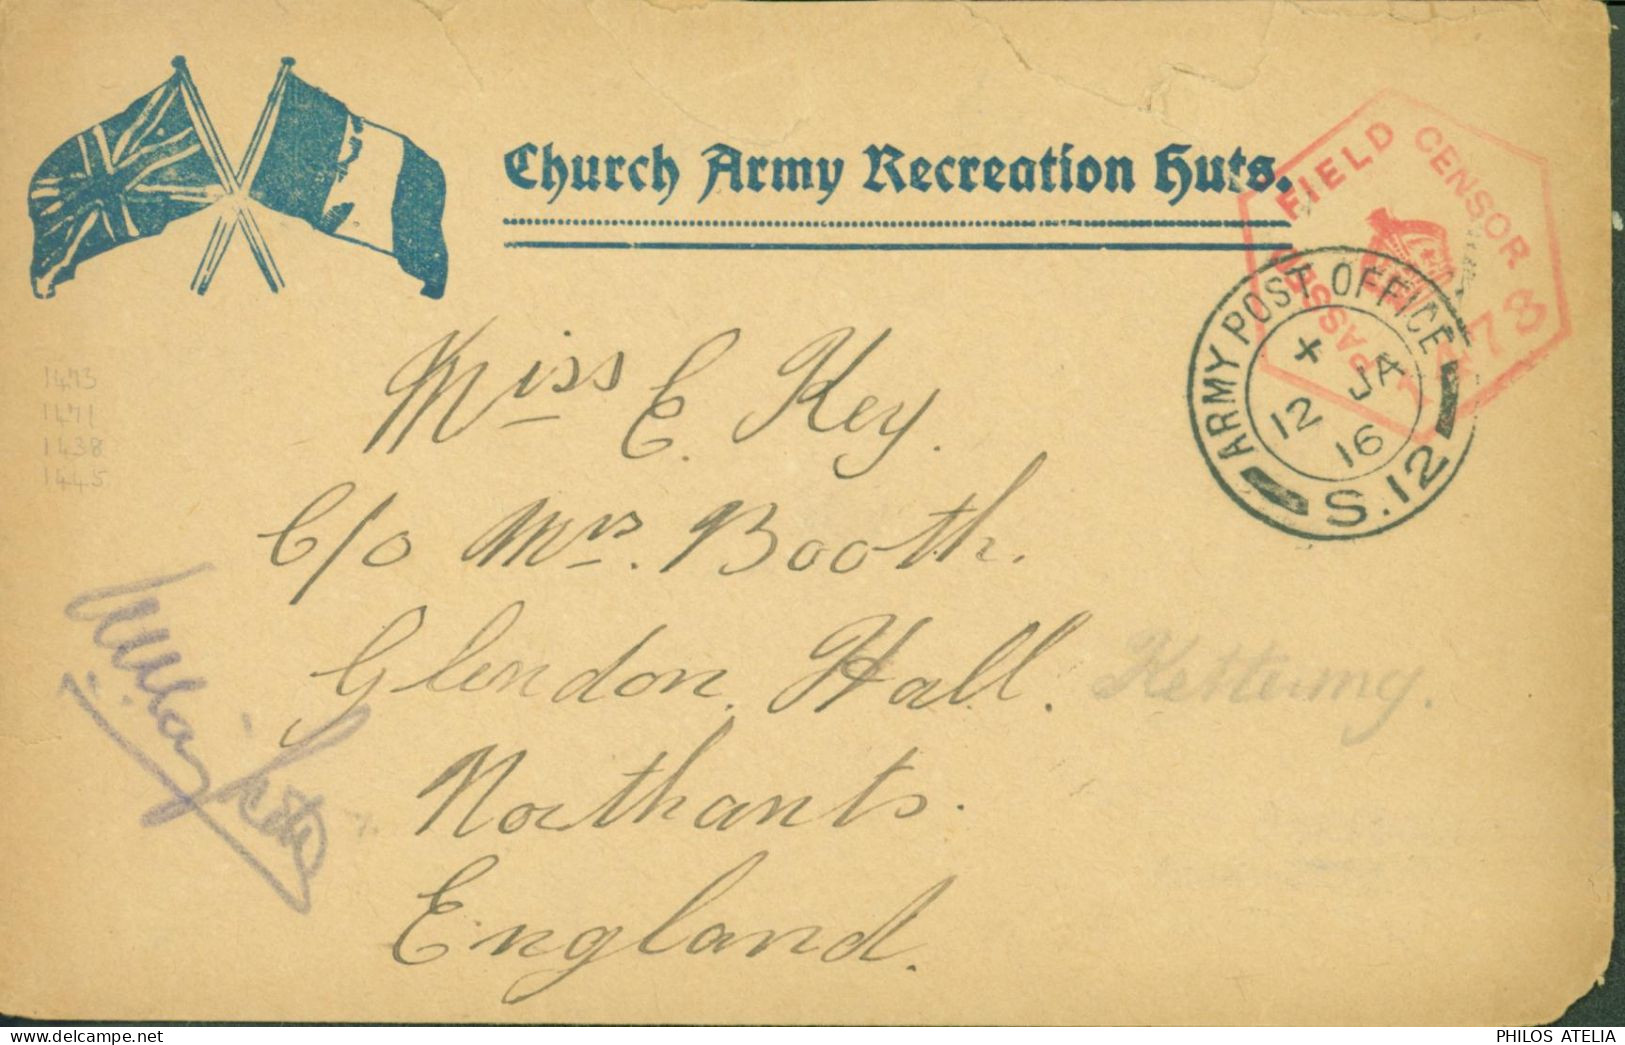 Church Army Recreation Huts.
PASSED FIELD CENSOR
1478
ARMY POST OFFICE
+
12 JA
16
S.12
1473
1471
1438
1445
Miss E. Key.
C/o Mrs. Booth.
Glendon. Hall. Kettering.
Northants.
England.
PHILOS ATELIA